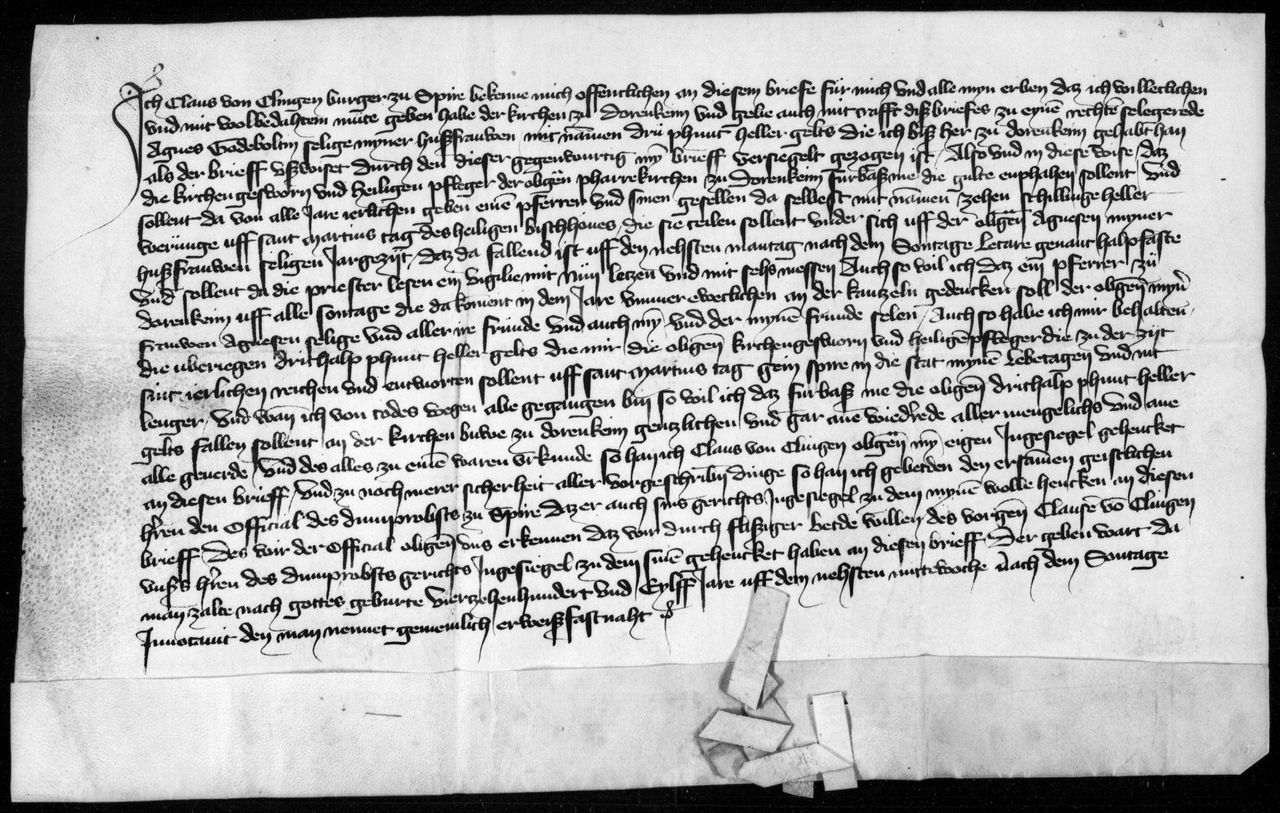 Ich Claus von Clingen burger zu Spire bekenne mich offentlichen an diesem briefe für mich vnd alle myn erben daz ich willeclichen
vnd mit wolbedahtem müte geben habe der kirchen zu Dorenkeim vnd gebe auch mit crafft diß briefes zu eyme rechte selegerede
Agnes Godeboltin selige myner hußfrauwen mit namen dru phunt heller gelts die ich biß her zu dorenkeim gehabt han
als der brieff vßwiset durch den dieser gegenwurtig myn brieff versiegelt gezogen ist / Also vnd in diese wise / daz
die kirchengesworn vnd heiligen pfleger der obgen pharrekirchen zu Dorenkeim fürbaß me die gulte enphahen sollent vnd
sollent da von alle Jare ierlichen geben eime pferrer vnd sinen gesellen da selbest mit namen zehen schillinge heller
werunge uff sant martins tag des heiligen bischhoues / die sie teilen sollent vnder sich uff der obgen Agnesen myner
hußfrauwen seligen Jargezijt / daz da fallend ist uff den nehsten mantag nach dem Sontage Letare genant halpfaste
vnd sollent da die priester lesen ein vigilie mit nün letzen vnd mit sehs messen / Auch so wil ich daz ein pferrer zu
dorenkeim uff alle sontage die da koment in dem Jare vmmer eweclichen an der kantzeln gedencken soll der obgen myner
frauwen Agnesen selige vnd aller ire fründe vnd auch myn vnd der mynen fründe selen / Auch so habe ich mir behalten
die uberigen drithalp phunt heller gelts die mir die obgen kirchengesworn vnd heiligenpfleger die zu der zijt
sint ierlichen reichen vnd entworten sollent uff sant martins tag gein spire in die stat mynen lebetagen vnd nit
lenger / vnd wan ich von todes wegen abe gegangen bin so wil ich daz fürbaß me die obgen drithalp phunt heller
gelts fallen sollent an der kirchen buwe zu dorenkeim gentzlichen vnd gar ane wiedrede aller mengelichs vnd ane
alle geuerde / vnd des alles zu eime waren vrkunde so han ich Claus von Clingen obgen myn eigen Ingesiegel gehencket
an diesen brieff / vnd zu noch merer sicherheit aller vorgeschriben dinge so han ich gebetden den ersamen geistlichen
hren den Official des dumprobsts zu Spire daz er auch sins gerichts Ingesiegel zu dem mynen wolle hencken an diesen
brieff / Des wir der Official obgen vns erkennen daz wir durch flißiger betde willen des vorgen Clause von Clingen
vnsers hren des dumprobsts gerichts Ingesiegel zu dem sinen gehencket haben an diesen brieff / Der geben wart da
man zalte nach gottes geburte viertzehenhundert vnd Eylff Jare uff dem nehsten mittewoche nach dem Sontage
Inuocauit den man nennet gemeinlich erweißfastnaht